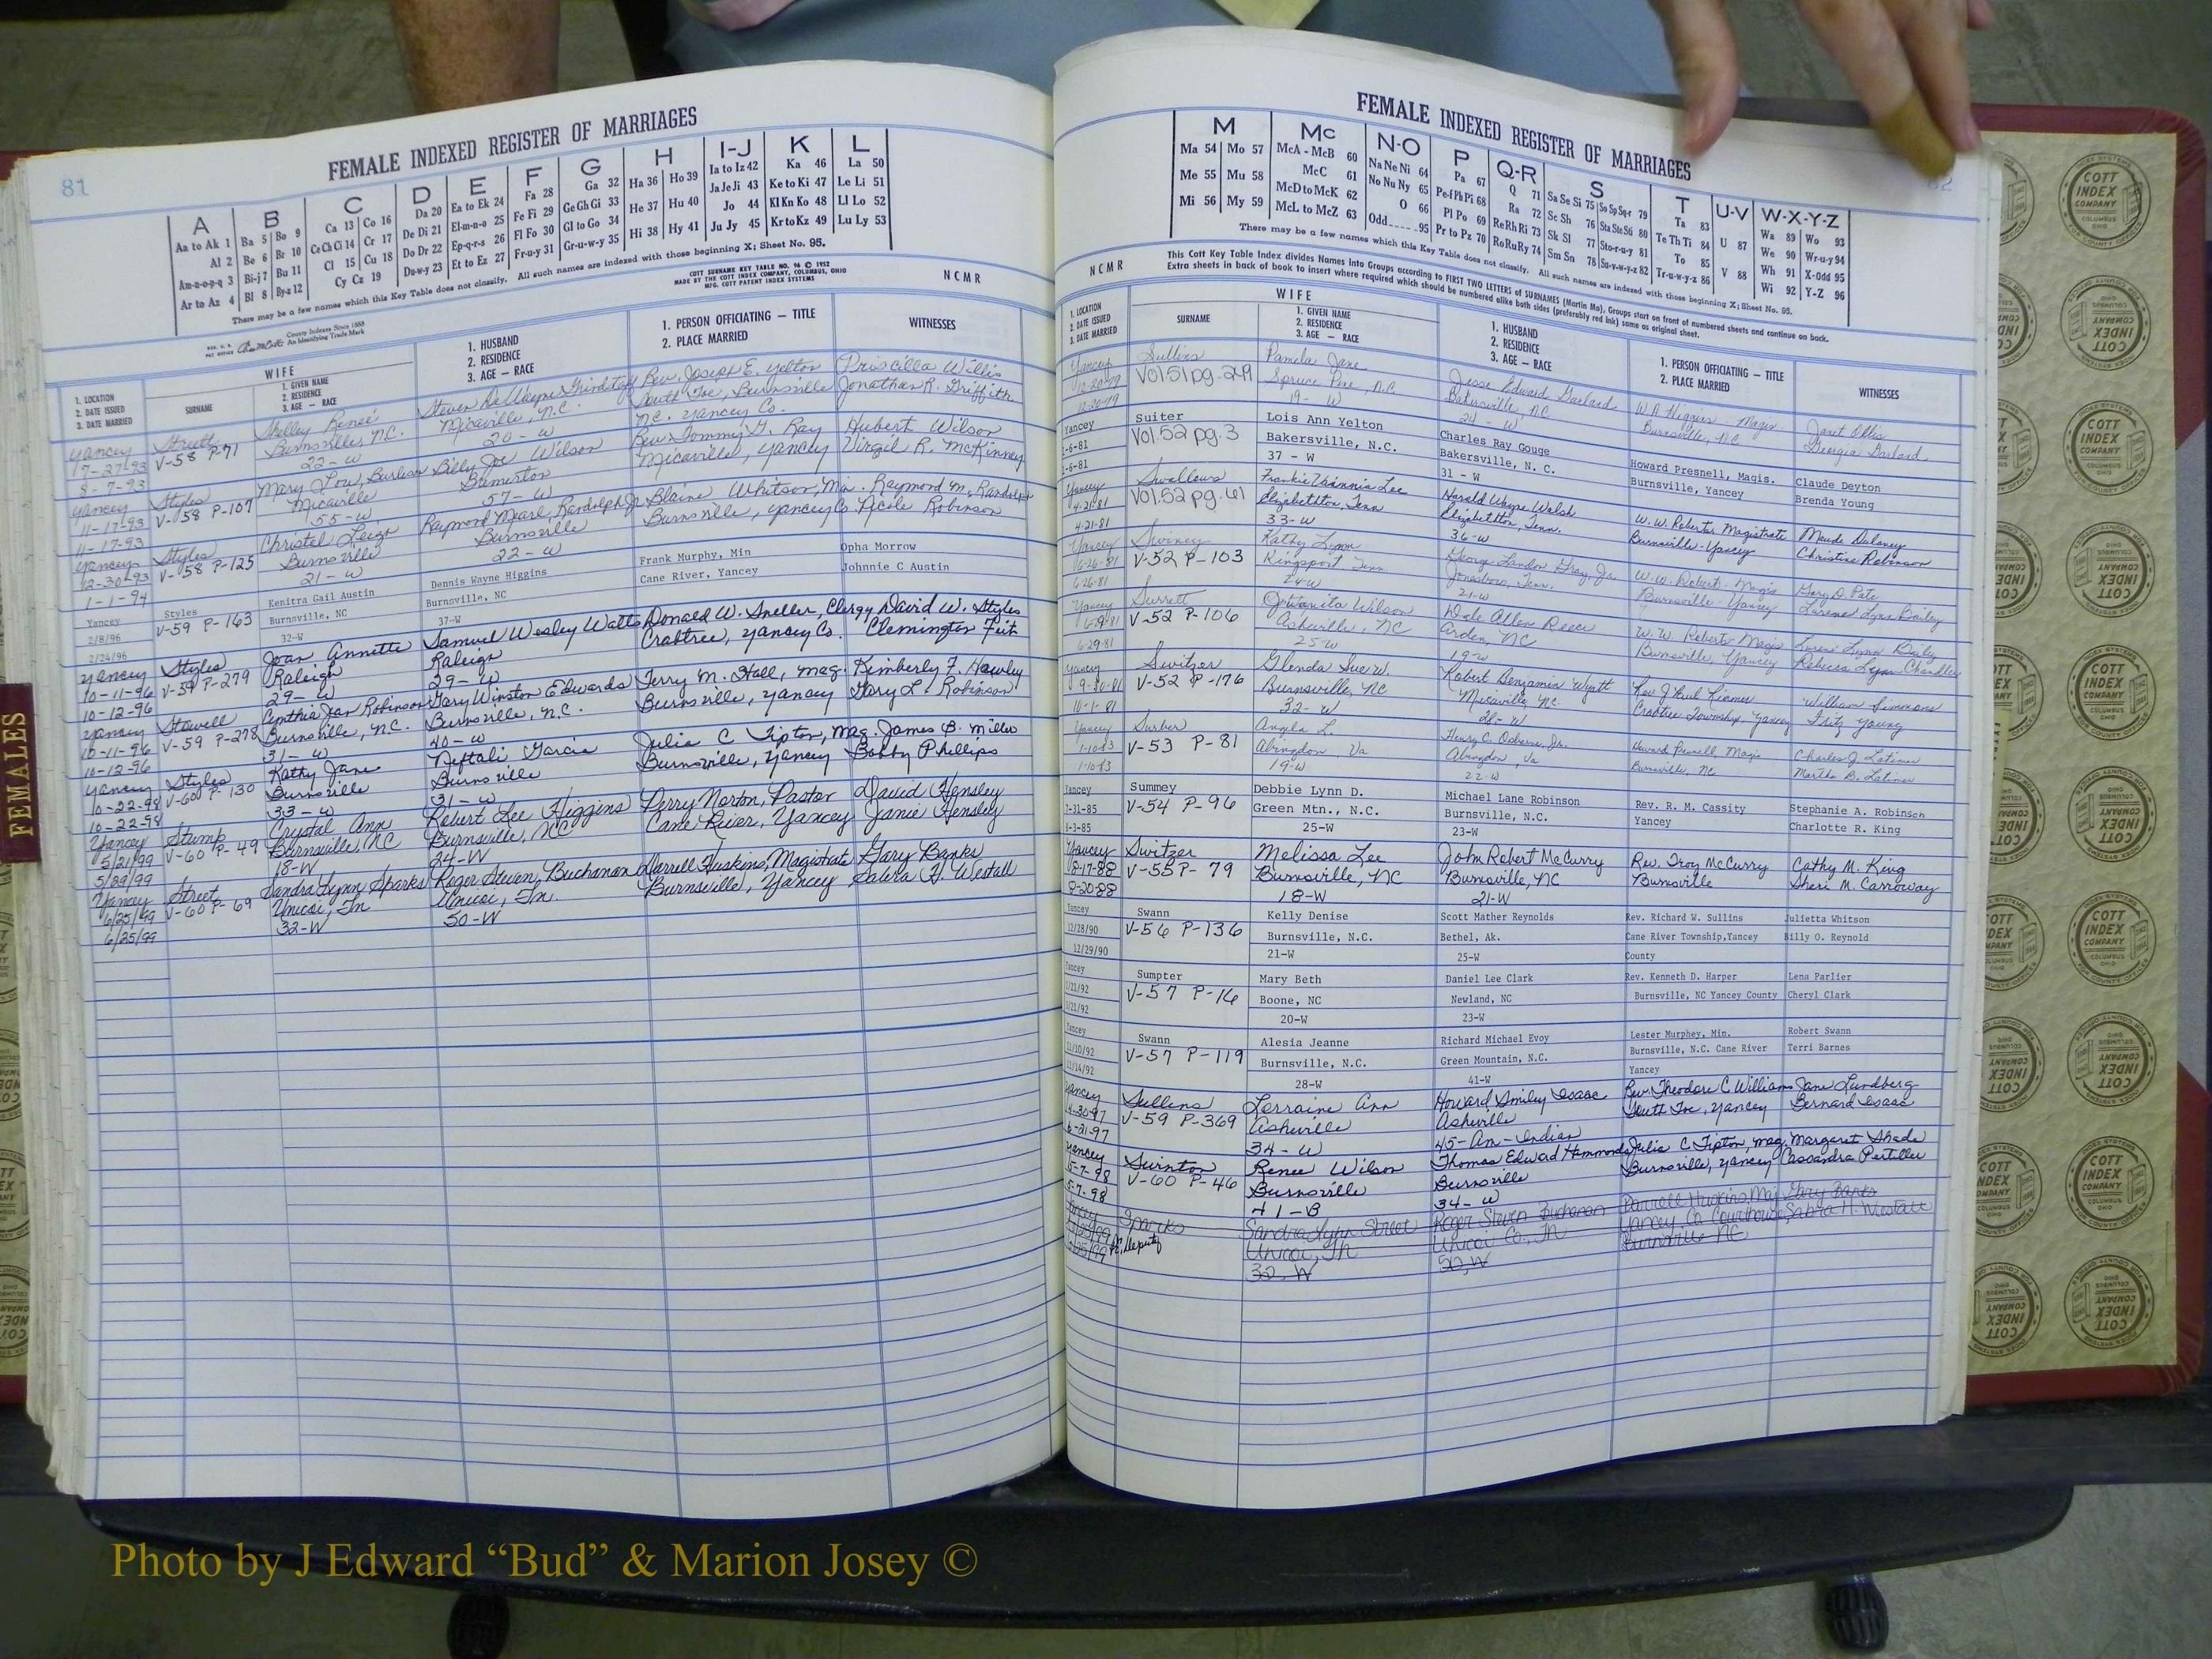 81
FEMALE INDEXED REGISTER OF MARRIAGES
A B C D E F G H I-J K L
Aa to Ak 1 Ba 5 Bo 9 Ca 13 Co 16 Da 20 Ea to Ek 24 Fa 28 Ga 32 Ha 36 Ho 39 Ia to Iz 42 Ka 46 La 50
Al 2 Be 6 Br 10 Ce Ch Ci 14 Cr 17 De Di 21 El-m-n-o 25 Fe Fi 29 Ge Gh Gi 33 He 37 Hu 40 Ja Je Ji 43 Ke to Ki 47 Le Li 51
Am-n-o-p-q 3 Bi-j 7 Bu 11 Cl 15 Cu 18 Do Dr 22 Ep-q-r-s 26 Fl Fo 30 Gl to Go 34 Hi 38 Hy 41 Jo 44 Kl Kn Ko 48 Ll Lo 52
Ar to Az 4 Bl 8 By-z 12 Cy Cz 19 Du-w-y 23 Et to Ez 27 Fr-u-y 31 Gr-u-w-y 35 Ju Jy 45 Kr to Kz 49 Lu Ly 53
There may be a few names which this Key Table does not classify. All such names are indexed with those beginning X; Sheet No. 95.
County Indexes Since 1888
An Identifying Trade Mark
COTT SURNAME KEY TABLE NO. 96 © 1952
MADE BY THE COTT INDEX COMPANY, COLUMBUS, OHIO
MFG. COTT PATENT INDEX SYSTEMS
NCMR
1. LOCATION
2. DATE ISSUED
3. DATE MARRIED
WIFE
SURNAME
1. GIVEN NAME
2. RESIDENCE
3. AGE — RACE
1. HUSBAND
2. RESIDENCE
3. AGE — RACE
1. PERSON OFFICIATING — TITLE
2. PLACE MARRIED
WITNESSES
Yancey Street Shelley Reneé Steven DeWayne Grindstaff Rev. Joseph E. Yelton Priscilla Willis
7-27-93 V-58 P-71 Burnsville, N.C. Micaville, N.C. South Toe, Burnsville Jonathan R. Griffith
8-7-93 22-W 20-W NC. Yancey Co.
Yancey Styles Mary Lou Burleson Billy Joe Wilson Rev. Tommy G. Ray Hubert Wilson
11-17-93 V-58 P-107 Micaville Micaville, Yancey Virgil R. McKinney
11-17-93 55-W 57-W
Yancey Styles Christel Leigh Raymond Mearl Randolph Jr Blaine Whitson, Mag. Raymond M. Randolph
12-30-93 V-58 P-125 Burnsville Burnsville Burnsville, Yancey Co. Nicole Robinson
1-1-94 21-W 22-W
Yancey Styles Kenitra Gail Austin Dennis Wayne Higgins Frank Murphy, Min Opha Morrow
2/8/96 V-59 P-163 Burnsville, NC Burnsville, NC Cane River, Yancey Johnnie C Austin
2/24/96 32-W 37-W
Yancey Styles Joan Annette Samuel Wesley Watts Donald W. Sneller, Clergy David W. Styles
10-11-96 V-59 P-279 Raleigh Raleigh Crabtree, Yancey Co. Clemington
10-12-96 29-W 29-W
Yancey Stowell Cynthia Jean Robinson Gary Winston Edwards Terry M. Hall, Mag. Kimberly F. Hawley
10-11-96 V-59 P-278 Burnsville, N.C. Burnsville, N.C. Burnsville, Yancey Gary L. Robinson
10-12-96 31-W 40-W
Yancey Styles Kathy Jane Neftali Garcia Julia C Tipton, Mag. James B. Miller
10-22-98 V-60 P-130 Burnsville Burnsville Burnsville, Yancey Bobby Phillips
10-22-98 33-W 31-W
Yancey Stump Crystal Ann Robert Lee Higgins Perry Norton, Pastor David Hensley
5/21/99 V-60 P-49 Burnsville, NC Burnsville, NC Cane River, Yancey Janie Hensley
5/29/99 18-W 24-W
Yancey Street Sandra Lynn Sparks Roger Steven Buchanan Darrell Huskins, Magistrate Gary Banks
6/25/99 V-60 P-69 Unicoi, Tn Unicoi, Tn. Burnsville, Yancey Sabra H. Westall
6/25/99 32-W 50-W
FEMALES
82
FEMALE INDEXED REGISTER OF MARRIAGES
M Mc N-O P Q-R S T U-V W-X-Y-Z
Ma 54 Mo 57 McA - McB 60 Na Ne Ni 64 Pa 67 Q 71 Sa Se Si 75 So Sp Sq-r 79 Ta 83 U 87 Wa 89 Wo 93
Me 55 Mu 58 McC 61 No Nu Ny 65 Pe-f Ph Pi 68 Ra 72 Sc Sh 76 Sta Ste Sti 80 Te Th Ti 84 V 88 We 90 Wr-u-y 94
Mi 56 My 59 McD to McK 62 O 66 Pl Po 69 Re Rh Ri 73 Sk Sl 77 Sto-r-u-y 81 To 85 Wh 91 X-Odd 95
McL to McZ 63 Odd.....95 Pr to Pz 70 Ro Ru Ry 74 Sm Sn 78 Su-v-w-y-z 82 Tr-u-w-y-z 86 Wi 92 Y-Z 96
There may be a few names which this Key Table does not classify. All such names are indexed with those beginning X; Sheet No. 95.
This Cott Key Table Index divides Names into Groups according to FIRST TWO LETTERS of SURNAMES (Martin Ma). Groups start on front of numbered sheets and continue on back.
Extra sheets in back of book to insert where required which should be numbered alike both sides (preferably red ink) same as original sheet.
NCMR
1. LOCATION
2. DATE ISSUED
3. DATE MARRIED
WIFE
SURNAME
1. GIVEN NAME
2. RESIDENCE
3. AGE — RACE
1. HUSBAND
2. RESIDENCE
3. AGE — RACE
1. PERSON OFFICIATING — TITLE
2. PLACE MARRIED
WITNESSES
Yancey Sullins Pamela Jane Jesse Edward Garland W.A. Higgins - Magis Janet Ollis
12-20-79 Vol 51 pg. 249 Spruce Pine, N.C. Bakersville, NC Burnsville, NC Georgia Garland
12-20-79 19-W 24-W
Yancey Suiter Lois Ann Yelton Charles Ray Gouge Howard Presnell, Magis. Claude Deyton
2-6-81 Vol. 52 pg. 3 Bakersville, N.C. Bakersville, N. C. Burnsville, Yancey Brenda Young
2-6-81 37 - W 31 - W
Yancey Swallows Frankie Lee Harold Wayne Walsh W. W. Roberts Magistrate Maude Dulaney
4-21-81 Vol. 52 pg. 61 Elizabethton, Tenn Elizabethton, Tenn. Burnsville-Yancey Christine Robinson
4-21-81 33-W 36-W
Yancey Swiney Kathy Lynn George Landon Gray, Jr. W.W. Robert - Magis Gary D Pate
6-26-81 V-52 P-103 Kingsport Tenn Jonesboro, Tenn. Burnsville-Yancey Lorene Lynn Bailey
6-26-81 24-W 21-W
Yancey Surrett Jowanita Wilson Dale Allen Reece W. W. Roberts-Magis Lorene Lynn Bailey
6-29-81 V-52 P-106 Asheville, NC Arden, NC Burnsville, Yancey Rebecca Lynn Chandler
6-29-81 25-W 19-W
Yancey Switzer Glenda Sue W. Robert Benjamin Wyatt Rev J Paul William Simmons
9-30-81 V-52 P-176 Burnsville, NC Micaville, NC Crabtree Township, Yancey Fritz Young
10-1-81 32-W 28-W
Yancey Surber Angela L. Henry C. Osborne, Jr. Howard Presnell Magis Charles J Latimer
1-10-83 V-53 P-81 Abingdon Va Abingdon, Va Burnsville, NC Martha B. Latimer
1-10-83 19-W 22-W
Yancey Summey Debbie Lynn D. Michael Lane Robinson Rev. R. M. Cassity Stephanie A. Robinson
7-31-85 V-54 P-96 Green Mtn., N.C. Burnsville, N.C. Yancey Charlotte R. King
8-3-85 25-W 23-W
Yancey Switzer Melissa Lee John Robert McCurry Rev. Troy McCurry Cathy M. King
8-17-88 V-55 P-79 Burnsville, NC Burnsville, NC Burnsville Sheri M. Carroway
8-20-88 18-W 21-W
Yancey Swann Kelly Denise Scott Mather Reynolds Rev. Richard W. Sullins Julietta Whitson
12/28/90 V-56 P-136 Burnsville, N.C. Bethel, Ak. Cane River Township,Yancey Billy O. Reynold
12/29/90 21-W 25-W County
Yancey Sumpter Mary Beth Daniel Lee Clark Rev. Kenneth D. Harper Lena Parlier
/21/92 V-57 P-16 Boone, NC Newland, NC Burnsville, NC Yancey County Cheryl Clark
/21/92 20-W 23-W
Yancey Swann Alesia Jeanne Richard Michael Evoy Lester Murphey, Min. Robert Swann
11/10/92 V-57 P-119 Burnsville, N.C. Green Mountain, N.C. Burnsville, N.C. Cane River Terri Barnes
11/14/92 28-W 41-W Yancey
Yancey Sullins Lorraine Ann Howard Smiley Isaac Rev. Theodore C Williams Jane Lundberg
4-30-97 V-59 P-369 Asheville Asheville South Toe, Yancey Bernard Isaac
6-21-97 34-W 45-Am-Indian
Yancey Swinton Renee Wilson Thomas Edward Hammonds Julia C Tipton, mag. Margaret Shade
5-7-98 V-60 P-46 Burnsville Burnsville Burnsville, Yancey Cassandra Pertiller
5-7-98 41-B 34-W
Yancey Sparks Sandra Lynn Street Roger Steven Buchanan Darrell Huskins, Mag Gary Banks
6/25/99 deputy Unicoi, Tn Unicoi Co., Tn Yancey Co Courthouse, Sabra H. Westall
6/25/99 32, W 50, W Burnsville NC
COTT
INDEX
COMPANY
COLUMBUS
OHIO
Photo by J Edward “Bud” & Marion Josey ©